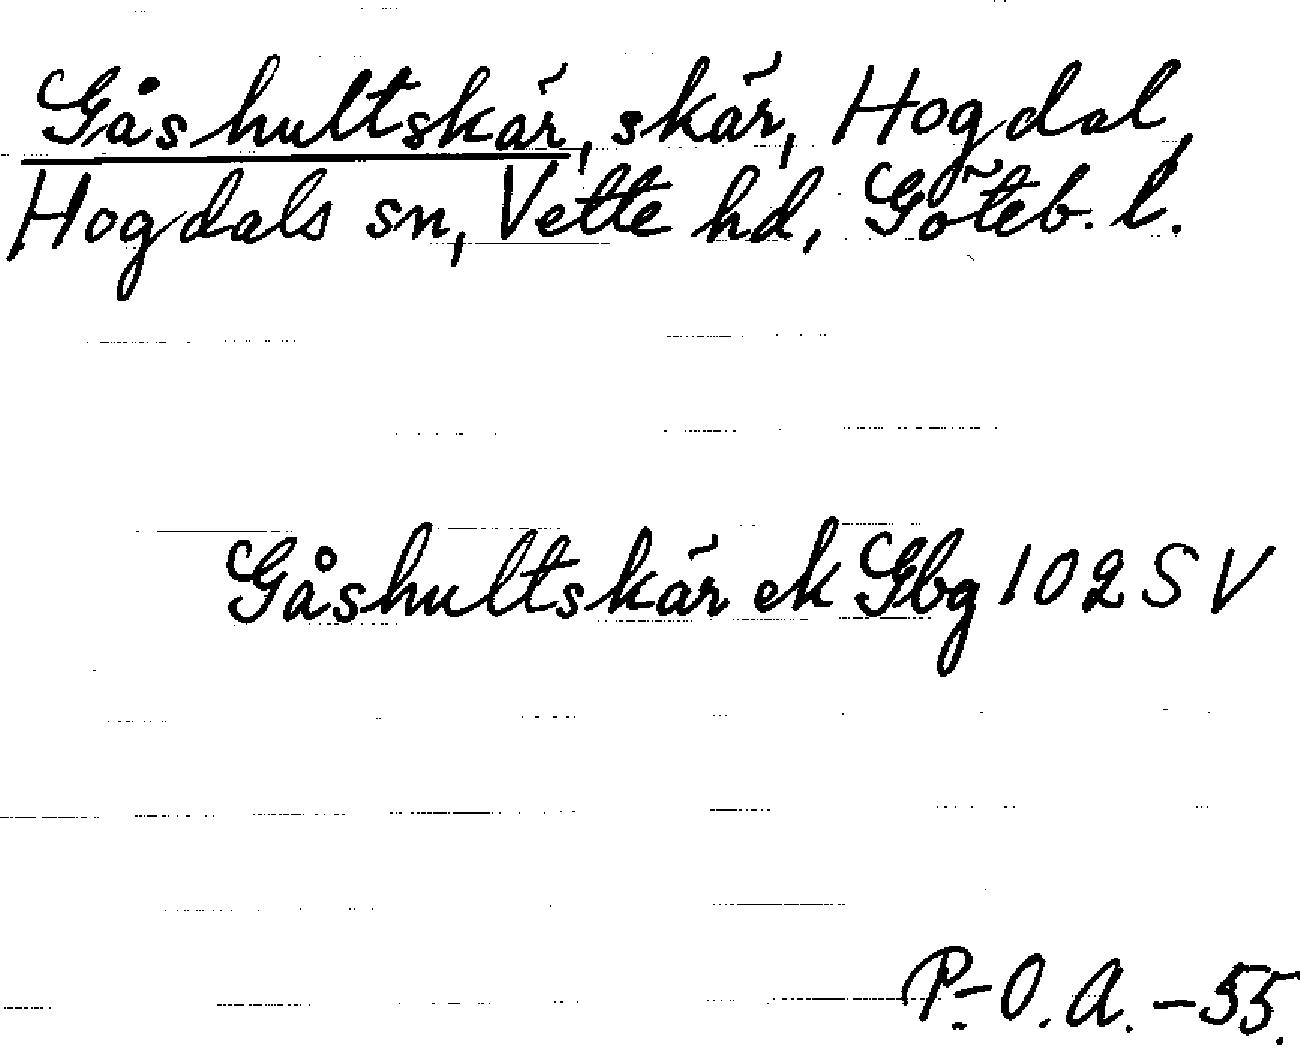 Gåshultskär, skär, Hogdal,
Hogdals sn, Vette hd, Göteb. l.
Gåshultskär ek Gbg 102 SV
P-O. A. -55.